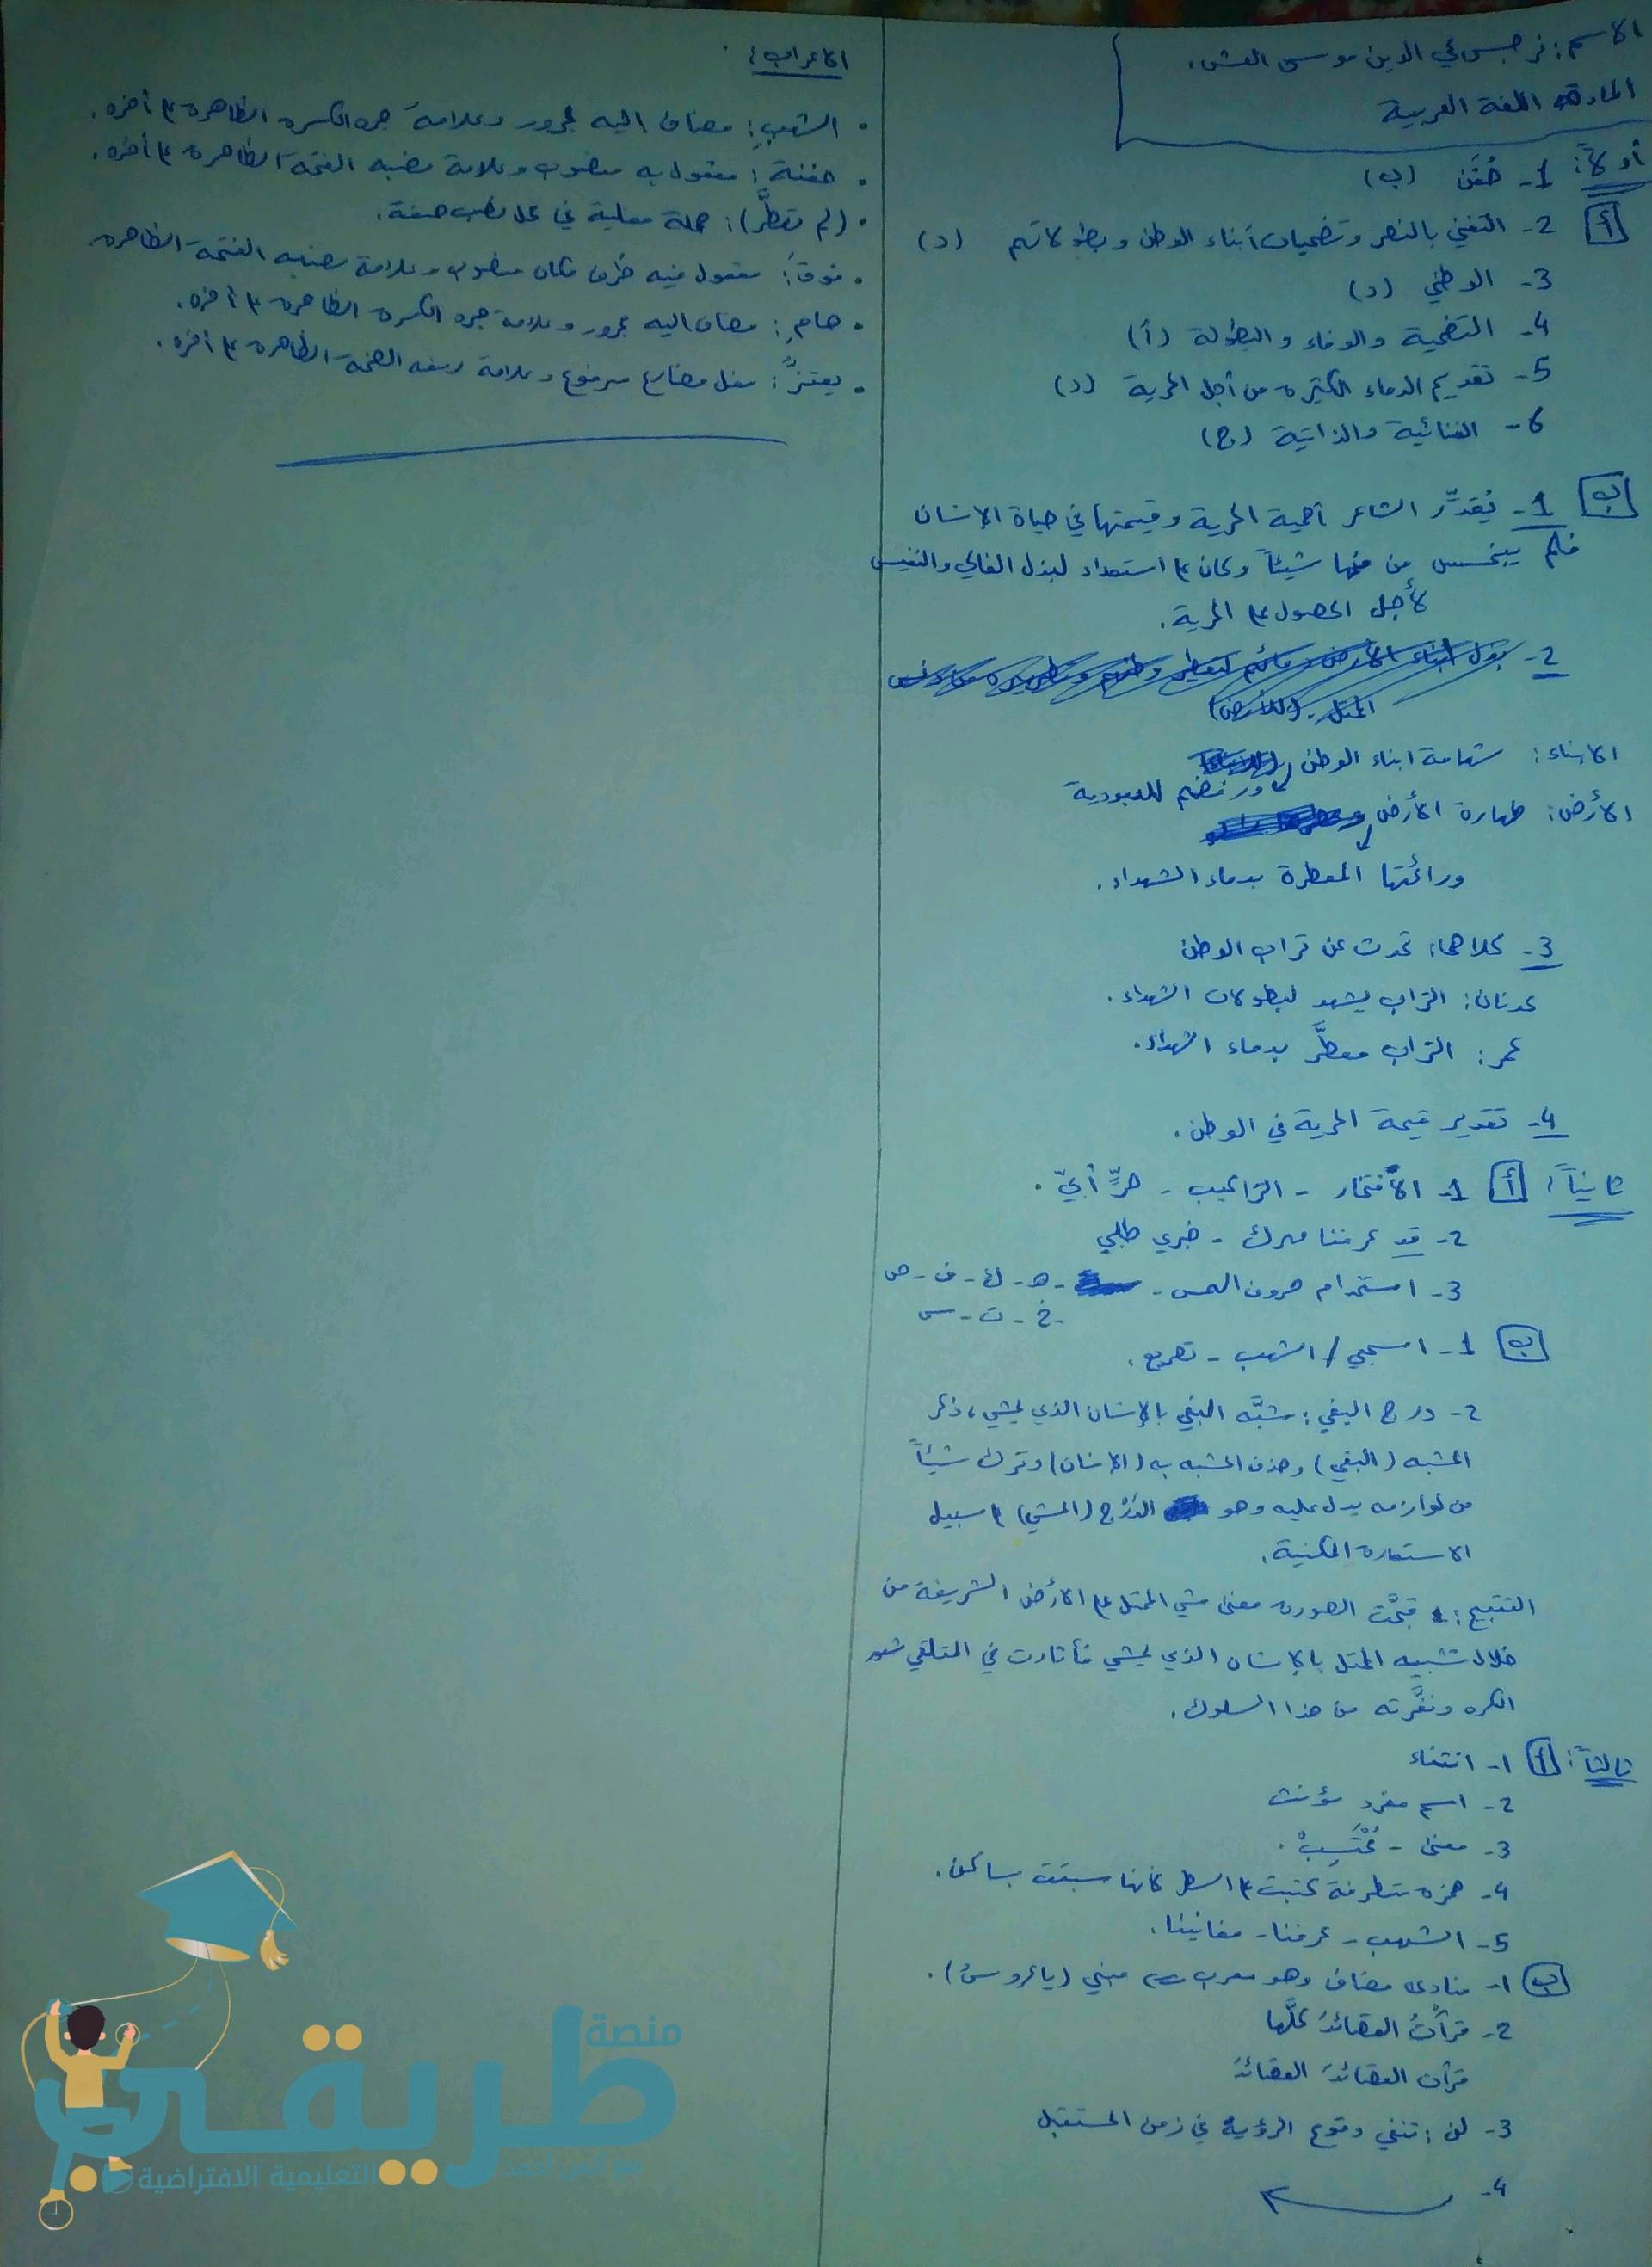 الاسم: نرجس محي الدين موسى العش.
المادة: اللغة العربية
أولاً: 1- حُقَن (ب)
أ 2- التغني بالنصر وتضحيات أبناء الوطن وبطولاتهم (د)
3- الوطني (د)
4- التضحية والوفاء والبطولة (أ)
5- تقديم الدماء الكثيرة من أجل الحرية (د)
6- الغنائية والذاتية (ج)
ب 1- يُقدِّر الشاعر أهمية الحرية وقيمتها في حياة الإنسان
فلم يبخس من شيئاً وكان ع استعداد لبذل الغالي والنفيس
لأجل الحصول ع الحرية.
2-
الأبناء: شهامة ابناء الوطن
ورفضهم للعبودية
الأرض: طهارة الأرض
ورائحتها المعطرة بدماء الشهداء.
3- كلاهما: تحدث عن تراب الوطن
عدنان: التراب يشهد لبطولات الشهداء.
عمر: التراب معطَّر بدماء الشهداء.
4- تقدير قيمة الحرية في الوطن.
ثانياً: أ 1- الافتخار - التراكيب - حرٍّ أبيّ.
2- قد عرفنا مهرك - خبري طلبي
3- استخدام حروف الهمس - - ه - ك - ف - ص
- خ - ت - س
ب 1- اسحبي / الشهب - تصريع.
2- درج البغي: شبَّه البغي بالإنسان الذي يمشي، ذكر
المشبه (البغي) وحذف المشبه به (الإنسان) وترك شيئاً
من لوازمه يدل عليه وهو الدَرْج (المشي) ع سبيل
الاستعارة المكنية.
التقبيح: قبَّحت الصورة معنى مشي المحتل ع الأرض الشريفة من
خلال تشبيه المحتل بالإنسان الذي يمشي فأثارت في المتلقي شعور
الكره ونفَّرته من هذا السلوك.
ثالثاً: أ 1- انتشاء
2- اسم مفرد مؤنث
3- معنى - مُحْتَسِبْ.
4- همزة متطرفة كتبت ع السطر لأنها سبقت بساكن.
5- الشهب - عرفنا - مغانينا.
ب 1- منادى مضاف وهو معرب مبني (يا عروسُ).
2- قرأتُ القصائدَ كلَّها
قرأت القصائدَ القصائدَ
3- لن: تنفي وقوع الرؤية في زمن المستقبل
4-
الاعراب:
• الشهبِ: مضاف اليه مجرور وعلامة جره الكسرة الظاهرة ع أخره.
• حفنة: مفعول به منصوب وعلامة نصبه الفتحة الظاهرة ع أخره.
• (لم تعطَّر): جملة فعلية في محل نصب صفة.
• فوقَ: مفعول فيه ظرف مكان منصوب وعلامة نصبه الفتحة الظاهرة
• هامِ: مضاف اليه مجرور وعلامة جره الكسرة الظاهرة ع أخره.
• يعتزُّ: فعل مضارع مرفوع وعلامة رفعه الضمة الظاهرة ع أخره.
منصة
طريقي
التعليمية الافتراضية